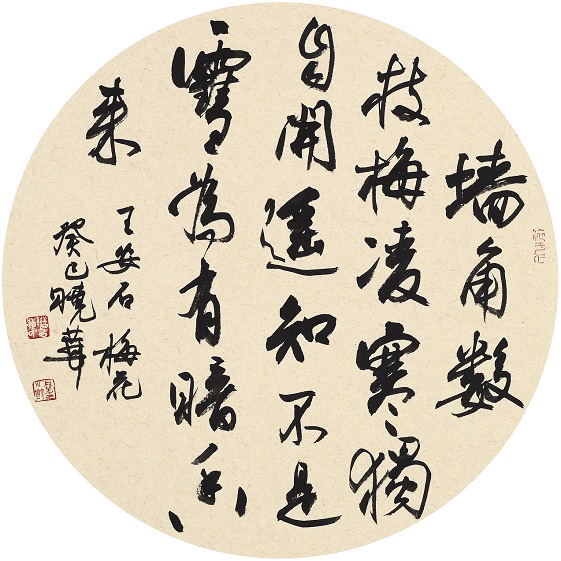 墙角数
枝梅凌寒独
自開遥知不是
雪為有暗香
来
王安石 梅花
癸巳曉華